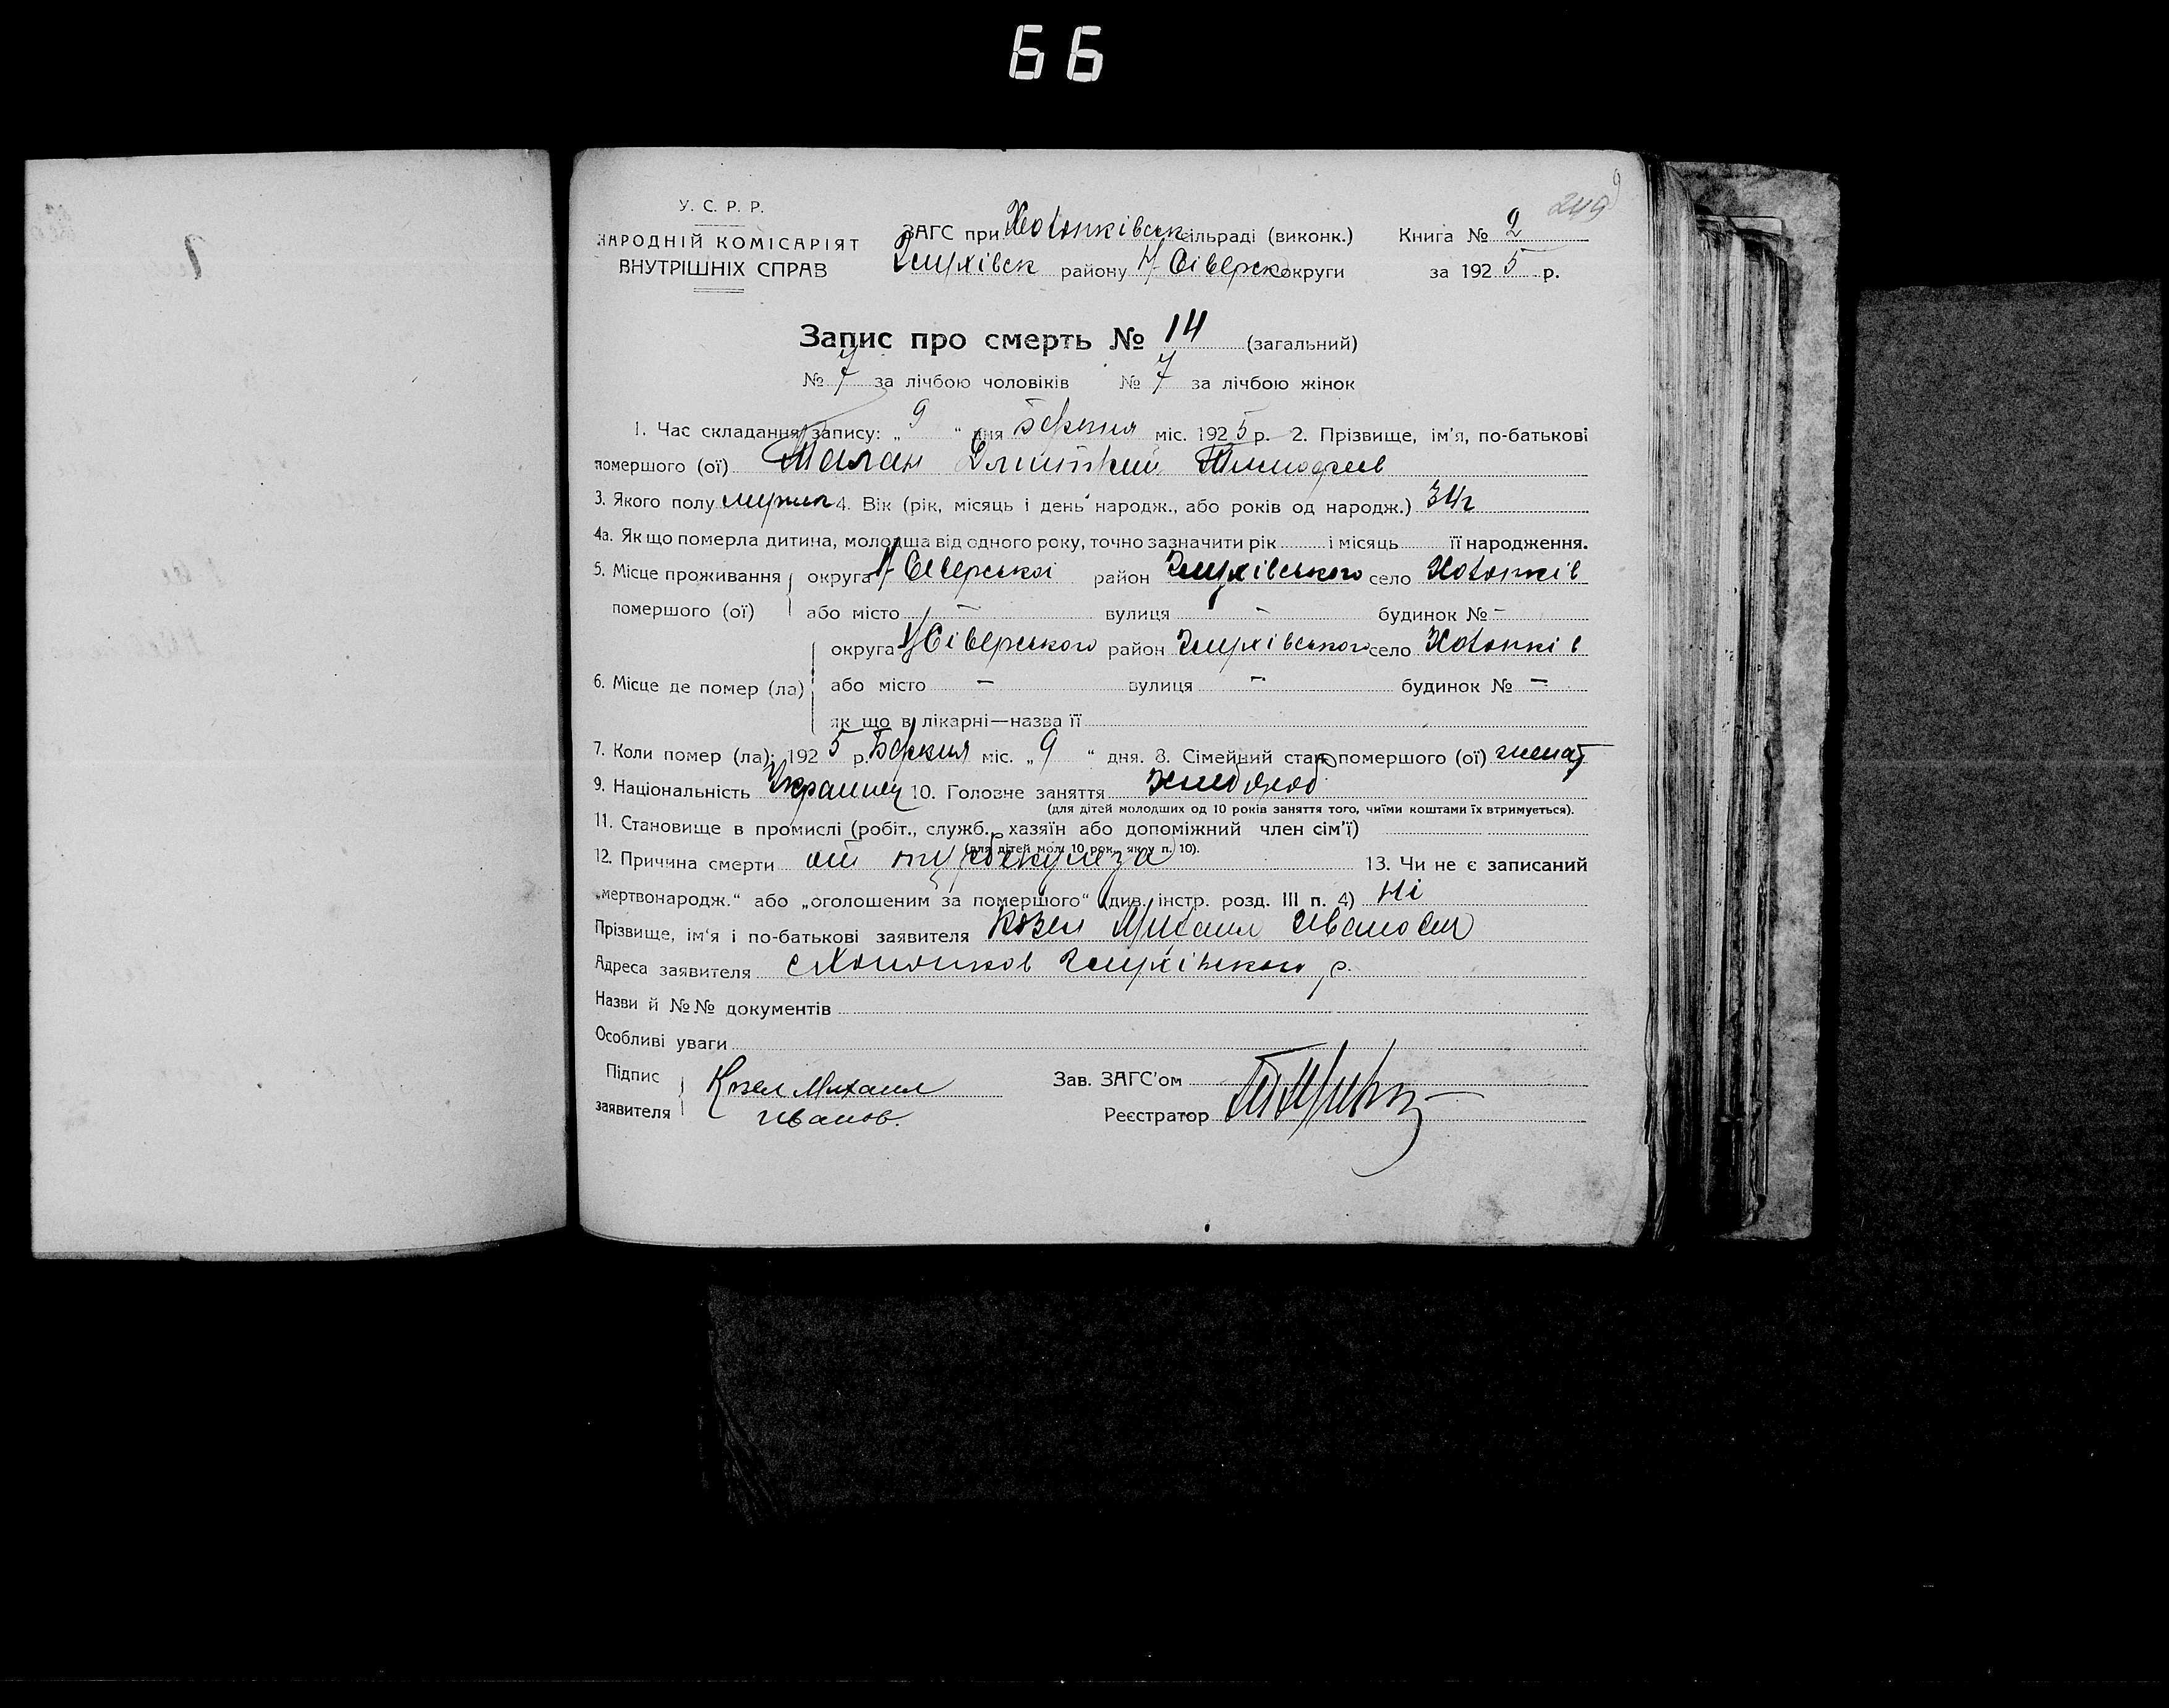 66
249
У. С. Р. Р.
НАРОДНІЙ КОМІСАРІЯТ
ВНУТРІШНІХ СПРАВ
ЗАГС при Хотьminківськ сільраді (виконк.) Книга № 2
Глухівск району Н-Сіверск округи за 1925 р.
Запис про смерть № 14 (загальний)
№ 7 за лічбою чоловіків № 7 за лічбою жінок
1. Час складання запису: „ 9 “ дня міс. 1925 р. 2. Прізвище, ім'я, по-батькові
помершого (ої)
3. Якого полу 4. Вік (рік, місяць і день народж., або років од народж.) 34 г
4а. Як що померла дитина, молодша від одного року, точно зазначити рік і місяць її народження.
5. Місце проживання округа Н-Сіверської район Глухівського село
помершого (ої) або місто — вулиця — будинок № —
округа Н Сіверського район Глухівського село
6. Місце де помер (ла) або місто — вулиця — будинок № —
як що в лікарні—назва її
7. Коли помер (ла): 1925 р. міс. „ 9 “ дня. 8. Сімейний стан помершого (ої) женат
9. Національність Украинец 10. Головне заняття хлебороб
(для дітей молодших од 10 років заняття того, чиїми коштами їх втримується).
11. Становище в промислі (робіт., служб., хазяїн або допоміжний член сім'ї)
(для дітей мол. 10 рок. як у п. 10).
12. Причина смерти от туберкулеза 13. Чи не є записаний
„мертвонародж.“ або „оголошеним за помершого“ (див. інстр. розд. III п. 4) Ні
Прізвище, ім'я і по-батькові заявителя Козел Михаил Иванович
Адреса заявителя Глухівского р.
Назви й №№ документів
Особливі уваги
Підпис Козел Михаил Зав. ЗАГС'ом
заявителя Иванов. Реєстратор